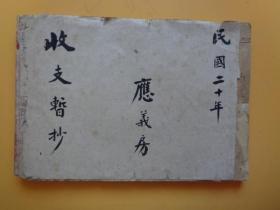 民國二十年
應義房
收支暫抄